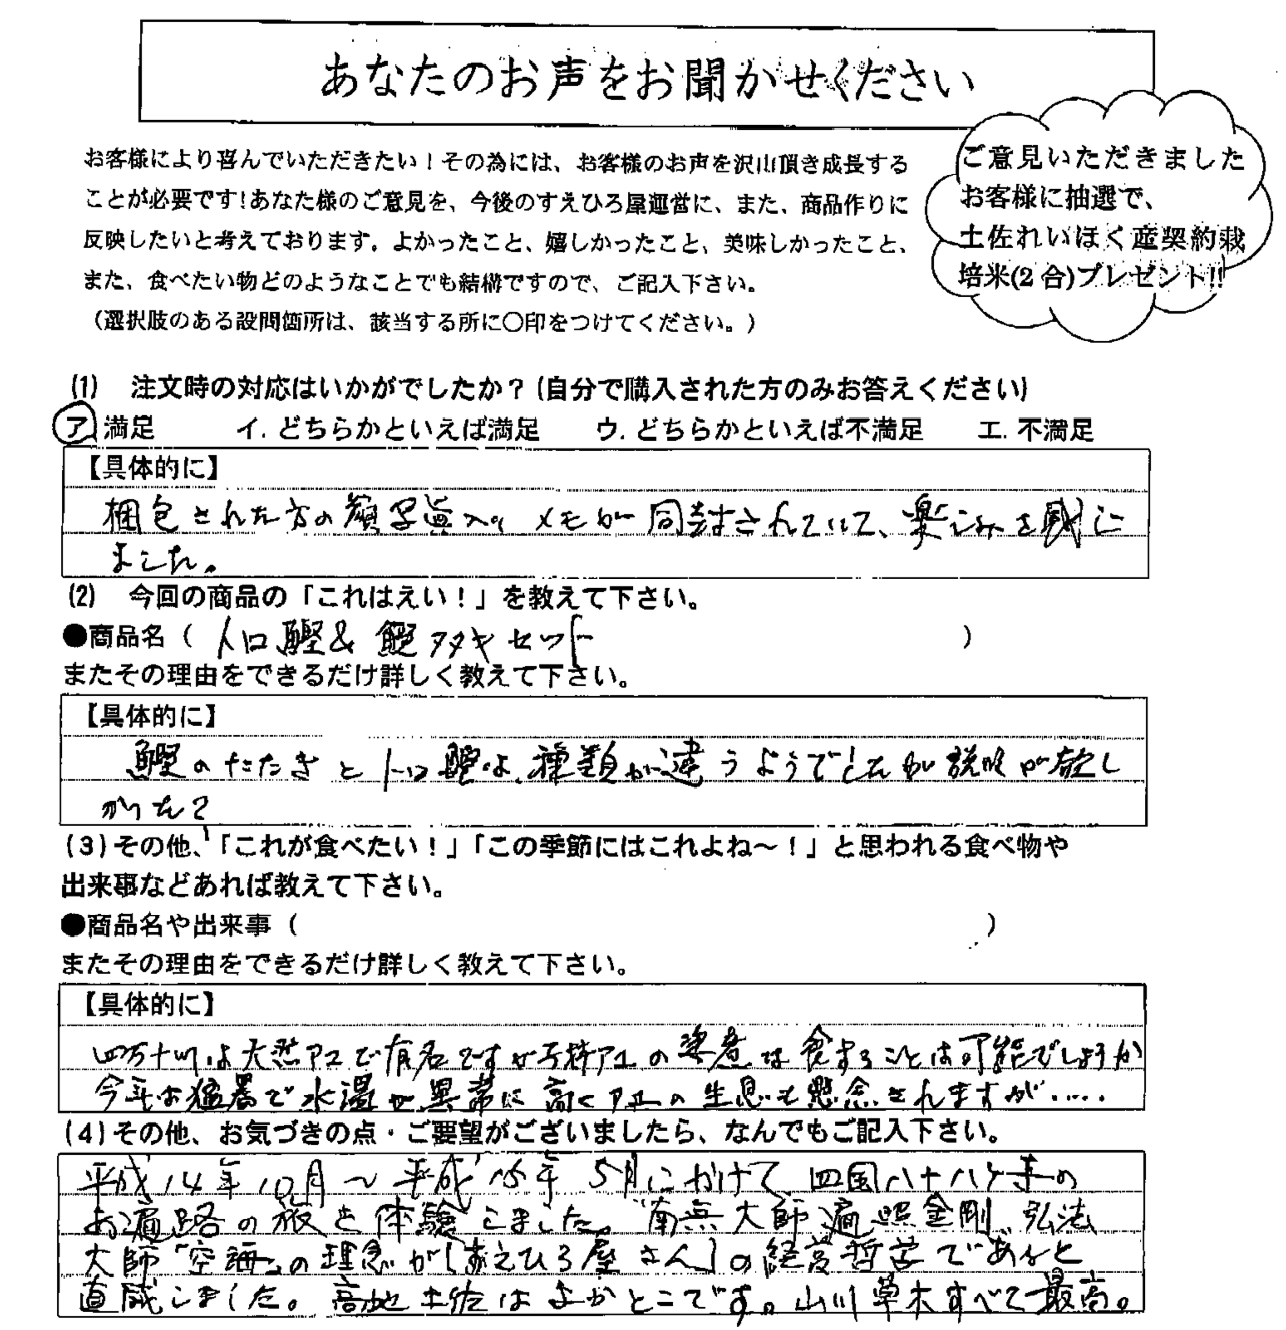 あなたのお声をお聞かせください
お客様により喜んでいただきたい！その為には、お客様のお声を沢山頂き成長する
ことが必要です！あなた様のご意見を、今後のすえひろ屋運営に、また、商品作りに
反映したいと考えております。よかったこと、嬉しかったこと、美味しかったこと、
また、食べたい物どのようなことでも結構ですので、ご記入下さい。
（選択肢のある設問箇所は、該当する所に〇印をつけてください。）
ご意見いただきました
お客様に抽選で、
土佐れいほく産契約栽
培米(2合)プレゼント!!
(1)　注文時の対応はいかがでしたか？(自分で購入された方のみお答えください)
ア.満足　イ.どちらかといえば満足　ウ.どちらかといえば不満足　エ.不満足
【具体的に】
梱包された方の顔写真入り メモが同封されていて、楽しみを感じ
ました。
(2)　今回の商品の「これはえい！」を教えて下さい。
●商品名（トロ鰹&鰹タタキセット）
またその理由をできるだけ詳しく教えて下さい。
【具体的に】
鰹のたたきとトロ鰹は、種類が違うようでしたが説明が欲し
かった?
(3)その他、「これが食べたい！」「この季節にはこれよね～！」と思われる食べ物や
出来事などあれば教えて下さい。
●商品名や出来事（　）
またその理由をできるだけ詳しく教えて下さい。
【具体的に】
四万十川は天然アユで有名ですが子持アユの姿煮は食することは可能でしょうか
今年は猛暑で水温が異常に高くアユの生息も懸念されますが‥‥
(4)その他、お気づきの点・ご要望がございましたら、なんでもご記入下さい。
平成14年10月～平成15年5月にかけて四国八十八ケ寺の
お遍路の旅を体験しました。"南無大師遍照金剛、弘法
大師「空海」の理念が[すえひろ屋さん]の経営哲学であると
直感しました。高知土佐はよかとこです。山川草木すべて最高。